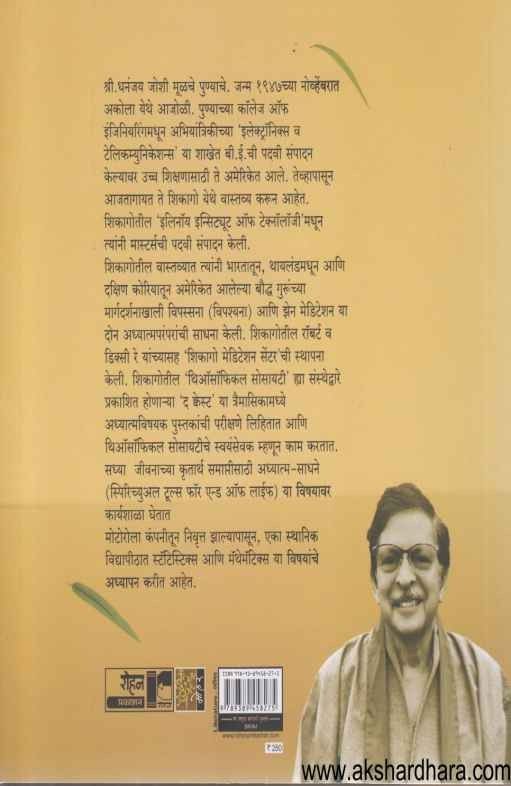 श्री.धनंजय जोशी मूळचे पुण्याचे. जन्म १९४७च्या नोव्हेंबरात
अकोला येथे आजोळी. पुण्याच्या कॉलेज ऑफ
इंजिनियरिंगमधून अभियांत्रिकीच्या 'इलेक्ट्रॉनिक्स व
टेलिकम्युनिकेशन्स' या शाखेत बी.ई.ची पदवी संपादन
केल्यावर उच्च शिक्षणासाठी ते अमेरिकेत आले. तेव्हापासून
आजतागायत ते शिकागो येथे वास्तव्य करून आहेत.
शिकागोतील 'इलिनॉय इन्सिट्यूट ऑफ टेक्नॉलॉजी'मधून
त्यांनी मास्टर्सची पदवी संपादन केली.
शिकागोतील वास्तव्यात त्यांनी भारतातून, थायलंडमधून आणि
दक्षिण कोरियातून अमेरिकेत आलेल्या बौद्ध गुरूंच्या
मार्गदर्शनाखाली विपस्सना (विपश्यना) आणि झेन मेडिटेशन या
दोन अध्यात्मपरंपरांची साधना केली. शिकागोतील रॉबर्ट व
डिक्सी रे यांच्यासह 'शिकागो मेडिटेशन सेंटर'ची स्थापना
केली. शिकागोतील 'थिऑसॉफिकल सोसायटी' ह्या संस्थेद्वारे
प्रकाशित होणाऱ्या 'द क्वेस्ट' या त्रैमासिकामध्ये
अध्यात्मविषयक पुस्तकांची परीक्षणे लिहितात आणि
थिऑसॉफिकल सोसायटीचे स्वयंसेवक म्हणून काम करतात.
सध्या जीवनाच्या कृतार्थ समाप्तीसाठी अध्यात्म-साधने
(स्पिरिच्युअल टूल्स फॉर एन्ड ऑफ लाईफ) या विषयावर
कार्यशाळा घेतात
मोटोरोला कंपनीतून निवृत्त झाल्यापासून, एका स्थानिक
विद्यापीठात स्टॅटिस्टिक्स आणि मॅथेमॅटिक्स या विषयांचे
अध्यापन करीत आहेत.
रोहन
प्रकाशन
₹ 250
www.akshardhara.com